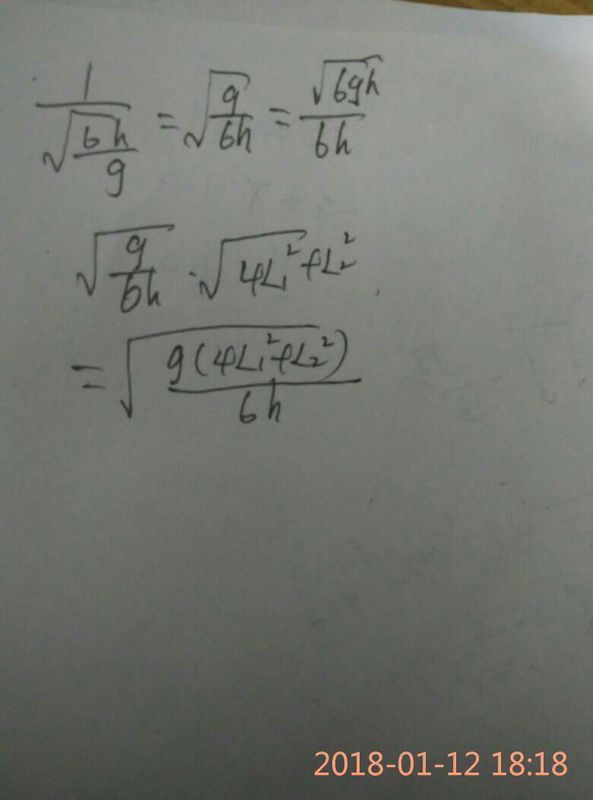 1/√(6h/g) = √(g/6h) = √6gh/6h
√(g/6h) · √(4L₁²+L₂²)
= √(g(4L₁²+L₂²)/6h)
2018-01-12 18:18